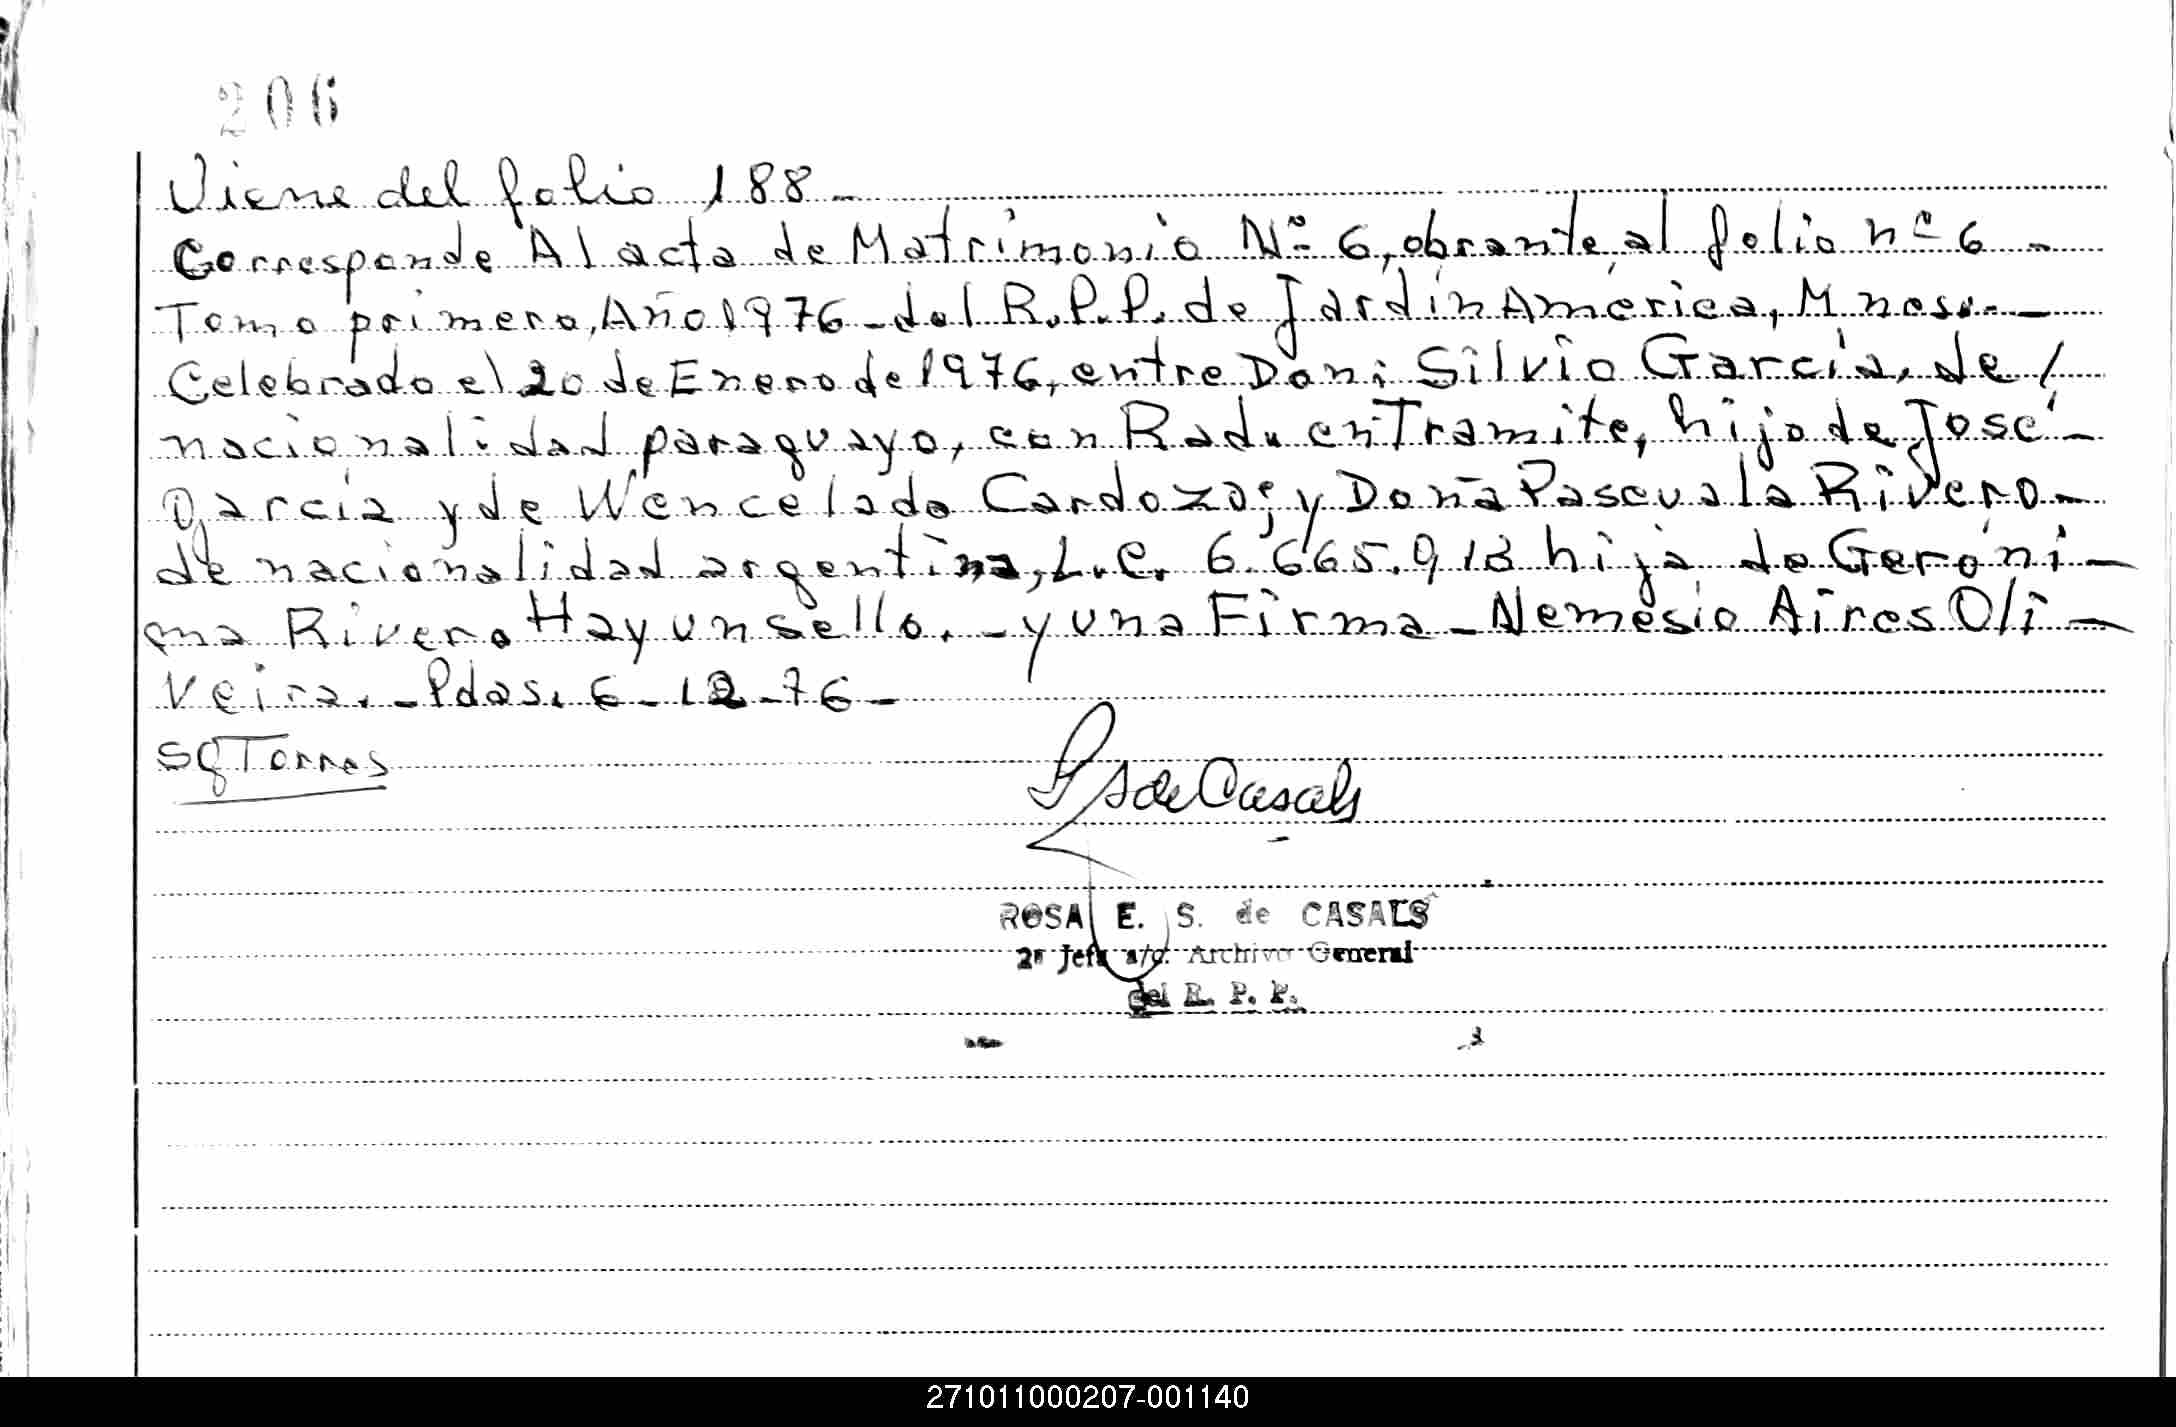 206
Viene del folio 188-
Corresponde Al acta de Matrimonio Nº 6, obrante al folio nº 6 -
Tomo primero, Año 1976 - del R.P.P. de Jardín América, Mnes.-
Celebrado el 20 de Enero de 1976, entre Don: Silvio García, de /
nacionalidad paraguayo, con Radu en Tramite, hijo de José -
García y de Wencelada Cardozo; y Doña Pascuala Rivero -
de nacionalidad argentina, L.C. 6.665.913 hija de Geróni -
ma Rivero Hay un sello. - y una Firma - Nemesio Aires Oli -
Veira. - Pdas. 6 - 12 - 76 -
SGTorres
de Casals
ROSA E. S. de CASALS
2ª Jefa a/c. Archivo General
del R. P. P.
271011000207-001140